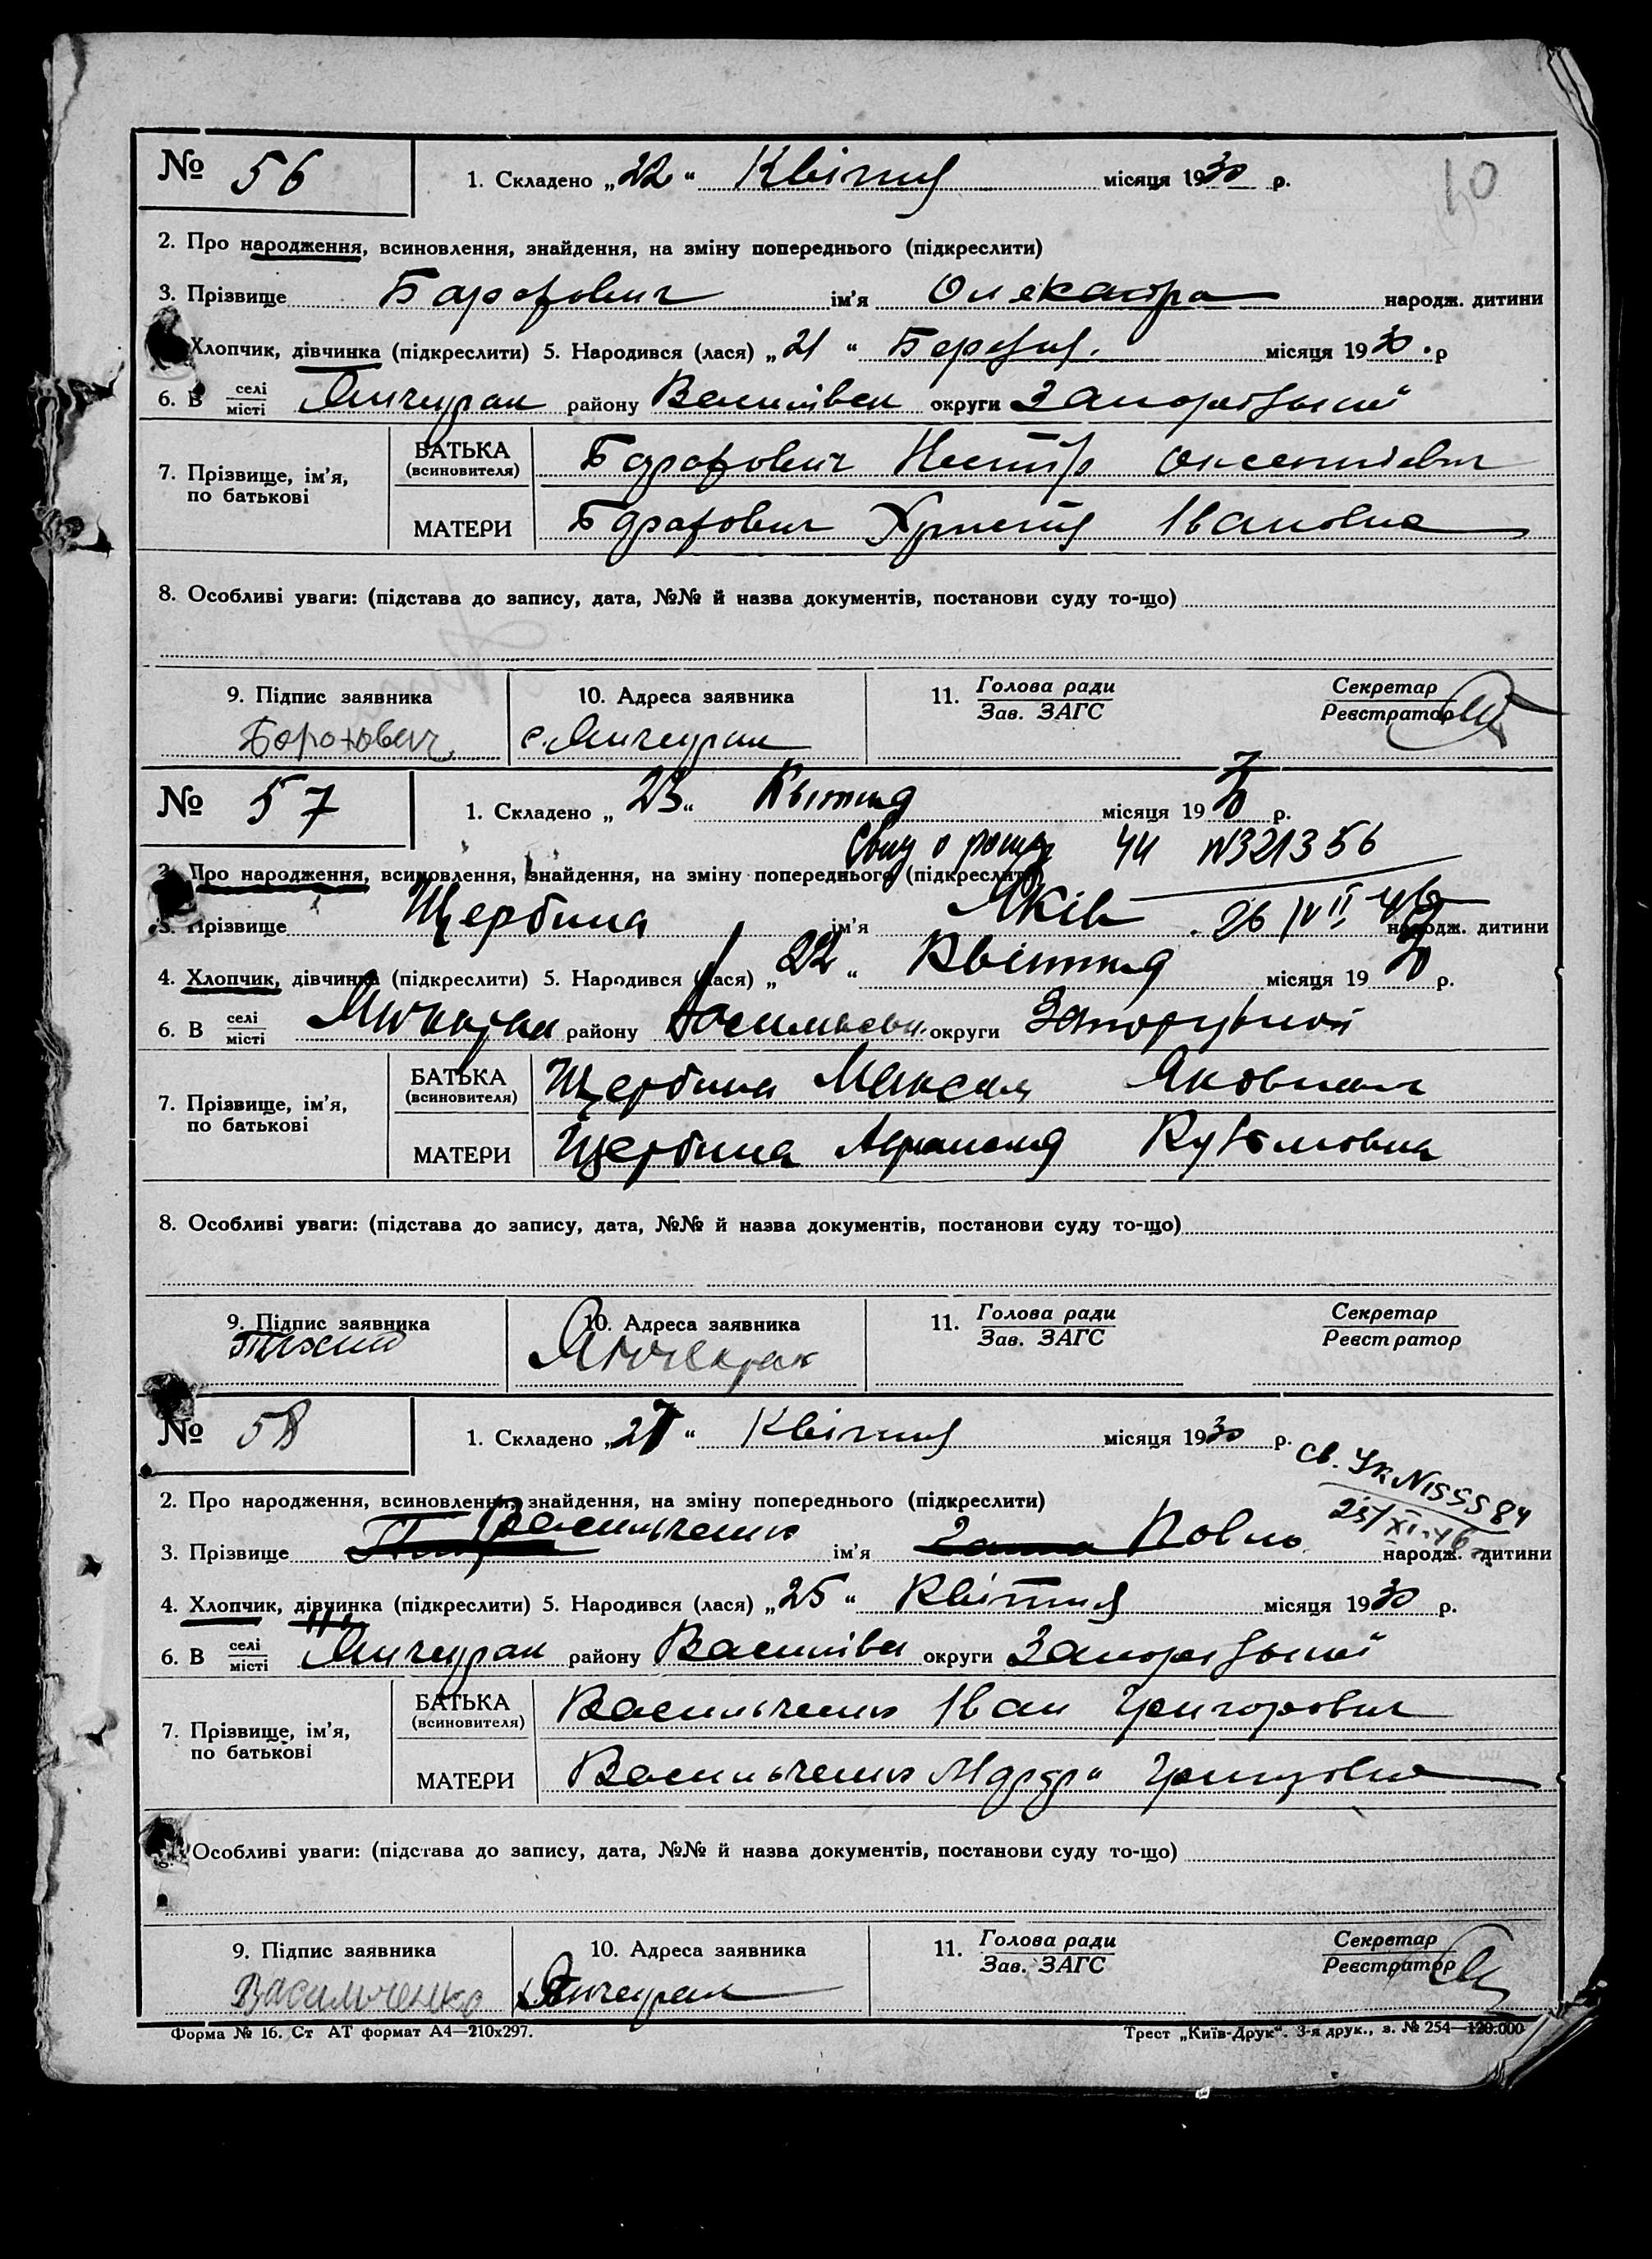 50
№ 56
1. Складено „22“ Квітня місяця 1930 р.
2. Про народження, всиновлення, знайдення, на зміну попереднього (підкреслити)
3. Прізвище ім’я Олександра народж. дитини
Хлопчик, дівчинка (підкреслити) 5. Народився (лася) „21“ Березня місяця 1930 р
6. В селі місті Янчекрак району Василівськ округи Запорізької
7. Прізвище, ім’я, по батькові
БАТЬКА (всиновителя) Нестір
МАТЕРИ Христя Івановна
8. Особливі уваги: (підстава до запису, дата, №№ й назва документів, постанови суду то-що)
9. Підпис заявника 10. Адреса заявника 11. Голова ради Зав. ЗАГС Секретар Реєстратор
Борохович с. Янчекрак
№ 57
1. Складено „23“ Квітня місяця 1930 р.
ЧИ №321356
2. Про народження, всиновлення, знайдення, на зміну попереднього (підкреслити)
3. Прізвище Щербина ім’я Яків 26/VII 46 народж. дитини
4. Хлопчик, дівчинка (підкреслити) 5. Народився (лася) „22“ Квітня місяця 1930 р.
6. В селі місті Янчекрак району округи Запорізької
7. Прізвище, ім’я, по батькові
БАТЬКА (всиновителя) Щербина Максим Якович
МАТЕРИ Щербина Кузьмовна
8. Особливі уваги: (підстава до запису, дата, №№ й назва документів, постанови суду то-що)
9. Підпис заявника 10. Адреса заявника 11. Голова ради Зав. ЗАГС Секретар Реєстратор
Янчекрак
№ 58
1. Складено „27“ Квітня місяця 1930 р.
Св. Ук №155584
2. Про народження, всиновлення, знайдення, на зміну попереднього (підкреслити)
23/XI-46
3. Прізвище Васильченко ім’я Павло народж. дитини
4. Хлопчик, дівчинка (підкреслити) 5. Народився (лася) „25“ Квітня місяця 1930 р.
6. В селі місті Янчекрак району Василівськ округи Запорізької
7. Прізвище, ім’я, по батькові
БАТЬКА (всиновителя) Васильченко Іван Григорович
МАТЕРИ Васильченко
Особливі уваги: (підстава до запису, дата, №№ й назва документів, постанови суду то-що)
9. Підпис заявника 10. Адреса заявника 11. Голова ради Зав. ЗАГС Секретар Реєстратор
Васильченко Янчекрак
Форма № 16. Ст АТ формат А4—210х297. Трест „Київ-Друк“. 3-я друк., з. № 254—120.000